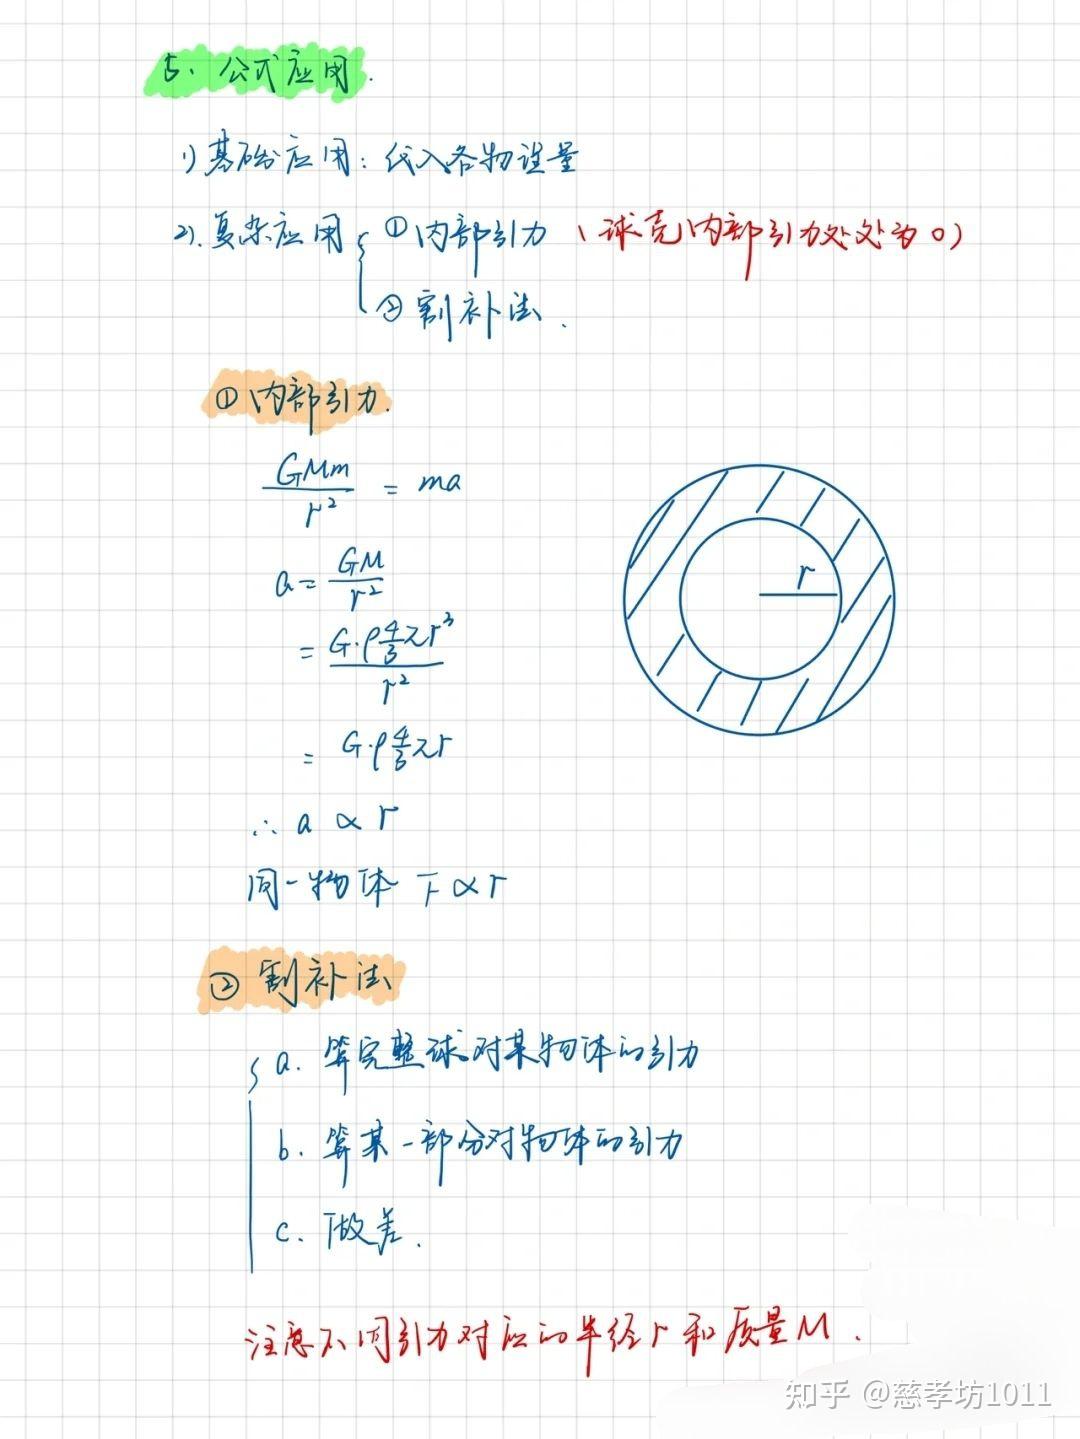 5. 公式应用.
1) 基础应用: 代入各物理量
2). 复杂应用 { ① 内部引力 (球壳内部引力处处为0)
② 割补法.
① 内部引力.
GMm/r² = ma
a = GM/r²
= G·ρ4/3πr³/r²
= G·ρ4/3πr
r
∴ a ∝ r
同一物体 F∝r
② 割补法
a. 算完整球对某物体的引力
b. 算某一部分对物体的引力
c. 做差.
注意不同引力对应的半径r和质量M.
知乎 @慈孝坊1011